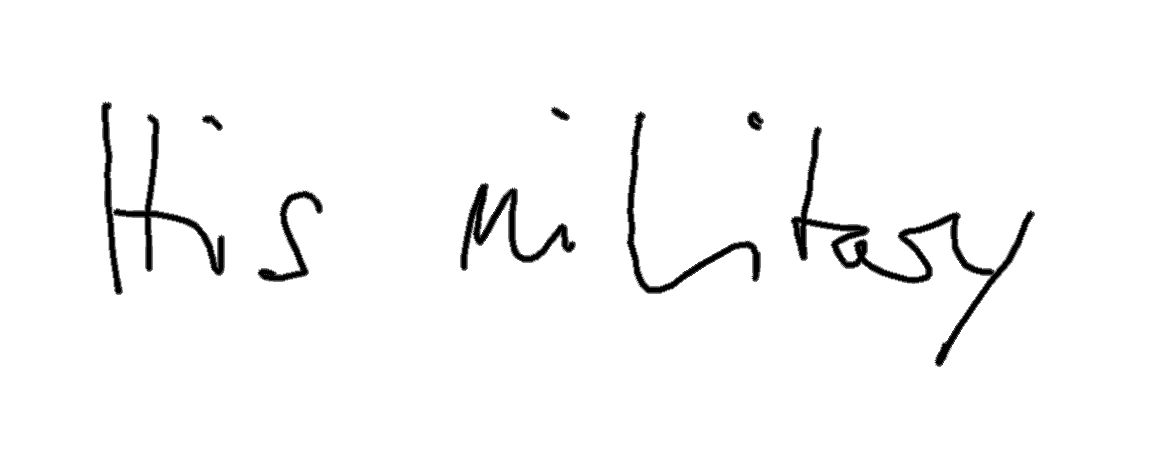 His military